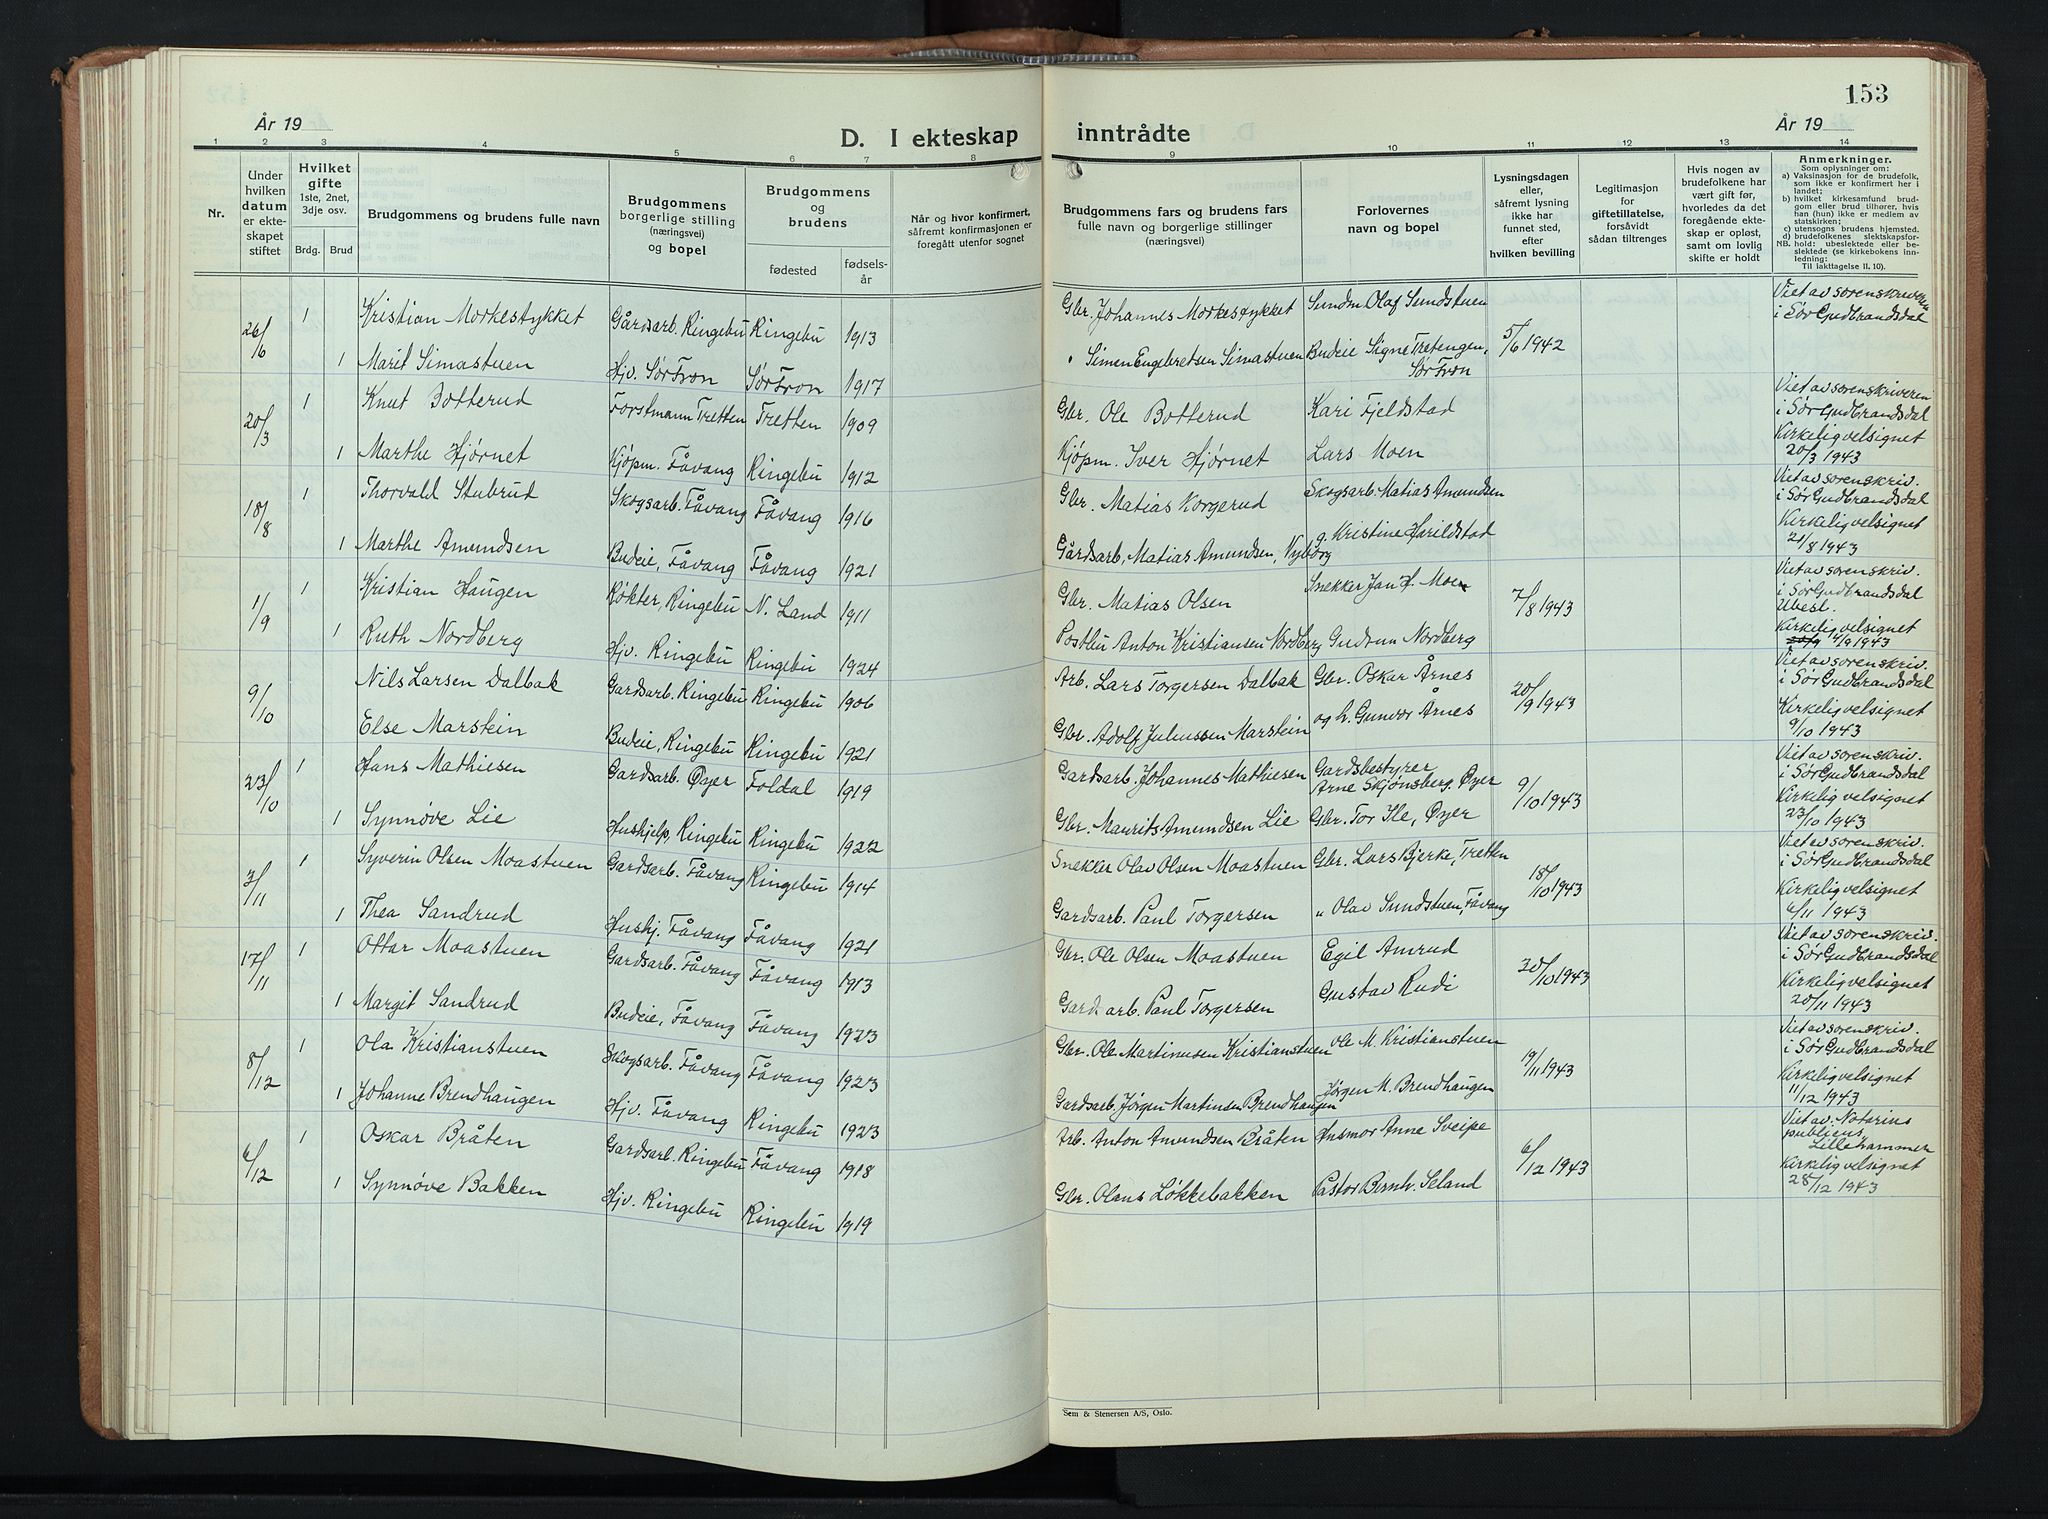 153
År 19
D. I ekteskap inntrådte
År 19
1 2 3 4 5 6 7 8 9 10 11 12 13 14
Nr.
Under
hvilken
datum
er ekte-
skapet
stiftet
Hvilket
gifte
1ste, 2net,
3dje osv.
Brdg. Brud
Brudgommens og brudens fulle navn
Brudgommens
borgerlige stilling
(næringsvei)
og bopel
Brudgommens
og
brudens
fødested
fødsels-
år
Når og hvor konfirmert,
såfremt konfirmasjonen er
foregått utenfor sognet
Brudgommens fars og brudens fars
fulle navn og borgerlige stillinger
(næringsvei)
Forlovernes
navn og bopel
Lysningsdagen
eller,
såfremt lysning
ikke har
funnet sted,
efter
hvilken bevilling
Legitimasjon
for
giftetillatelse,
forsåvidt
sådan tiltrenges
Hvis nogen av
brudefolkene har
vært gift før,
hvorledes da det
foregående ekte-
skap er opløst,
samt om lovlig
skifte er holdt
Anmerkninger.
Som oplysninger om:
a) Vaksinasjon for de brudefolk,
som ikke er konfirmert her i
landet;
b) hvilket kirkesamfund brud-
gom eller brud tilhører, hvis
han (hun) ikke er medlem av
statskirken;
c) utensogns brudens hjemsted.
d) brudefolkenes slektskapsfor-
NB. hold: ubeslektede eller be-
slektede (se kirkebokens inn-
ledning:
Til iakttagelse II. 10).
26/6 1 Kristian Morkestykket Gårdsarb. Ringebu Ringebu 1913 Gbr. Johannes Morkestykket Sundm. Olaf Sundstuen 5/6 1942 Viet av sorenskriveren
i Sør Gudbrandsdal
1 Marit Simastuen Hjv. Sør Fron Sør Fron 1917 " Simen Engebretsen Simastuen Budeie Signe Tretengen,
Sør Fron
20/3 1 Knut Botterud Forstmann Tretten Tretten 1909 Gbr. Ole Botterud Kari Fjeldstad Viet av sorenskriveren
i Sør Gudbrandsdal
1 Marthe Hjørnet Kjøpm. Fåvang Ringebu 1912 Kjøpm. Iver Hjørnet Lars Moen Kirkelig velsignet
20/3 1943
18/8 1 Thorvald Stubrud Skogsarb. Fåvang Fåvang 1916 Gbr. Matias Korgerud Skogsarb. Matias Amundsen Viet av sorenskriv.
i Sør Gudbrandsdal
1 Marthe Amundsen Budeie, Fåvang Fåvang 1921 Gårdsarb. Matias Amundsen, Nyborg g. Kristine Harildstad Kirkelig velsignet
21/8 1943
1/9 1 Kristian Haugen Røkter, Ringebu N. Land 1911 Gbr. Matias Olsen Snekker Jan H. Moen 7/8 1943 Viet av sorenskriv.
i Sør Gudbrandsdal
Ubesl.
1 Ruth Nordberg Hjv. Ringebu Ringebu 1924 Postbu Anton Kristiansen Nordberg Gudrun Nordberg Kirkelig velsignet
4/9 1943
9/10 Nils Larsen Dalbak Gardsarb. Ringebu Ringebu 1906 Arb. Lars Torgersen Dalbak Gbr. Oskar Årnes 20/9 1943 Viet av sorenskriv.
i Sør Gudbrandsdal
Else Marstein Budeie, Ringebu Ringebu 1921 Gbr. Adolf Juliussen Marstein og h. Gunvor Årnes Kirkelig velsignet
9/10 1943
23/10 1 Hans Mathiesen Gardsarb. Øyer Foldal 1919 Gardsarb. Johannes Mathiesen Gardsbestyrer
Arne Skjønsberg, Øyer 9/10 1943 Viet av sorenskriv.
i Sør Gudbrandsdal
1 Synnøve Lie Hushjelp, Ringebu Ringebu 1922 Gbr. Maurits Amundsen Lie Gbr. Tor Ile, Øyer Kirkelig velsignet
23/10 1943
3/11 1 Syverin Olsen Moastuen Gardsarb. Fåvang Ringebu 1914 Snekker Olav Olsen Moastuen Gbr. Lars Bjerke, Tretten 18/10 1943 Viet av sorenskriv.
i Sør Gudbrandsdal
1 Thea Sandrud Hushj. Fåvang Fåvang 1921 Gardsarb. Paul Torgersen " Olav Sundstuen, Fåvang Kirkelig velsignet
6/11 1943
17/11 1 Ottar Moastuen Gardsarb. Fåvang Fåvang 1913 Gbr. Ole Olsen Moastuen Egil Amrud 30/10 1943 Viet av sorenskriv.
i Sør Gudbrandsdal
1 Margit Sandrud Budeie, Fåvang Fåvang 1923 Gardsarb. Paul Torgersen Gustav Rudi Kirkelig velsignet
20/11 1943
8/12 1 Ola Kristianstuen Skogsarb. Fåvang Fåvang 1923 Gbr. Ole Martinusen Kristianstuen Ole M. Kristianstuen 19/11 1943 Viet av sorenskriv.
i Sør Gudbrandsdal
1 Johanne Brendhaugen Hjv. Fåvang Ringebu 1923 Gardsarb. Jørgen Martinsen Brendhaugen Jørgen M. Brendhaugen Kirkelig velsignet
11/12 1943
6/12 1 Oskar Bråten Gardsarb. Ringebu Fåvang 1918 Arb. Anton Amundsen Bråten Husmor Anne Sveipe 6/12 1943 Viet av Notarius
publicus,
Lillehammer
1 Synnøve Bakken Hjv. Ringebu Ringebu 1919 Gbr. Olaus Løkkebakken Pastor Bernh. Seland Kirkelig velsignet
28/12 1943
Sem & Stenersen A/S, Oslo.